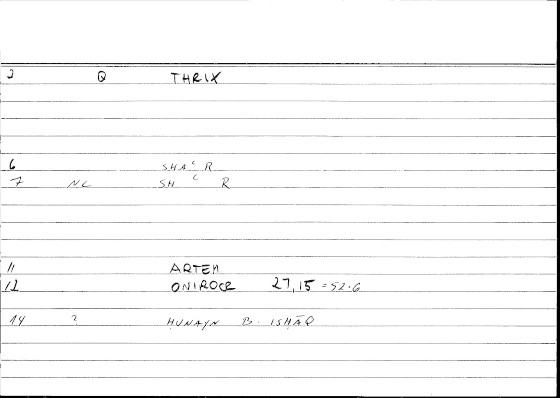 2 Q THRIX
6 SHAᶜR
7 NC SHᶜR
11 ARTEM
12 ONIROCR 27,15 = 52.6
14 ? ḤUNAYN B. ISḤĀQ